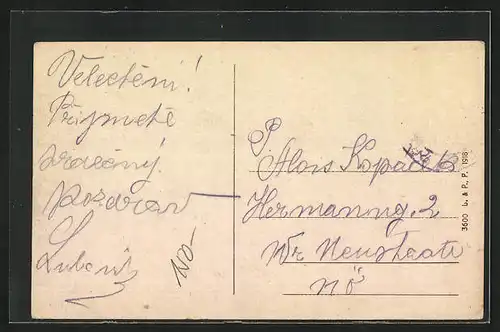 Velectění!
Přijmetě
srdečný
pozdrav
P
Alois Kopač
Hermanng. 2
Wr Neustadt
NÖ
3600 L. & P. P. 1918